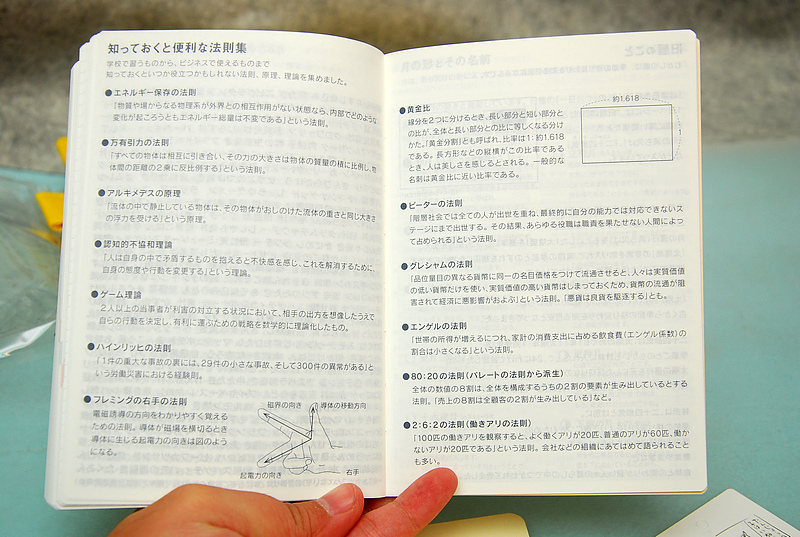 知っておくと便利な法則集
学校で習うものから、ビジネスで使えるものまで
知っておくといつか役立つかもしれない法則、原理、理論を集めました。
●エネルギー保存の法則
「物質や場からなる物理系が外界との相互作用がない状態なら、内部でどのような
変化が起ころうともエネルギー総量は不変である」という法則。
●万有引力の法則
「すべての物体は相互に引き合い、その力の大きさは物体の質量の積に比例し、物
体間の距離の2乗に反比例する」という法則。
●アルキメデスの原理
「流体の中で静止している物体は、その物体がおしのけた流体の重さと同じ大きさ
の浮力を受ける」という原理。
●認知的不協和理論
「人は自身の中で矛盾するものを抱えると不快感を感じ、これを解消するために、
自身の態度や行動を変更する」という理論。
●ゲーム理論
2人以上の当事者が利害の対立する状況において、相手の出方を想像したうえで
自らの行動を決定し、有利に運ぶための戦略を数学的に理論化したもの。
●ハインリッヒの法則
「1件の重大な事故の裏には、29件の小さな事故、そして300件の異常がある」と
いう労働災害における経験則。
●フレミングの右手の法則
電磁誘導の方向をわかりやすく覚える
ための法則。導体が磁場を横切るとき
導体に生じる起電力の向きは図のよう
になる。
磁界の向き
導体の移動方向
起電力の向き
右手
●黄金比
線分を2つに分けるとき、長い部分と短い部分と
の比が、全体と長い部分との比に等しくなる分け
かた。「黄金分割」とも呼ばれ、比率は1:約1.618
である。長方形などの縦横がこの比率である
とき、人は美しさを感じるとされる。一般的な
名刺は黄金比に近い比率である。
約1.618
1
●ピーターの法則
「階層社会では全ての人が出世を重ね、最終的に自分の能力では対応できないス
テージにまで出世する。その結果、あらゆる役職は職責を果たせない人間によっ
て占められる」という法則。
●グレシャムの法則
「品位量目の異なる貨幣に同一の名目価格をつけて流通させると、人々は実質価値
の低い貨幣だけを使い、実質価値の高い貨幣はしまっておくため、貨幣の流通が阻
害されて経済に悪影響がおよぶ」という法則。「悪貨は良貨を駆逐する」とも。
●エンゲルの法則
「世帯の所得が増えるにつれ、家計の消費支出に占める飲食費(エンゲル係数)の
割合は小さくなる」という法則。
●80:20の法則(パレートの法則から派生)
全体の数値の8割は、全体を構成するうちの2割の要素が生み出しているとする
法則。「売上の8割は全顧客の2割が生み出している」など。
●2:6:2の法則(働きアリの法則)
「100匹の働きアリを観察すると、よく働くアリが20匹、普通のアリが60匹、働か
ないアリが20匹である」という法則。会社などの組織にあてはめて語られること
も多い。